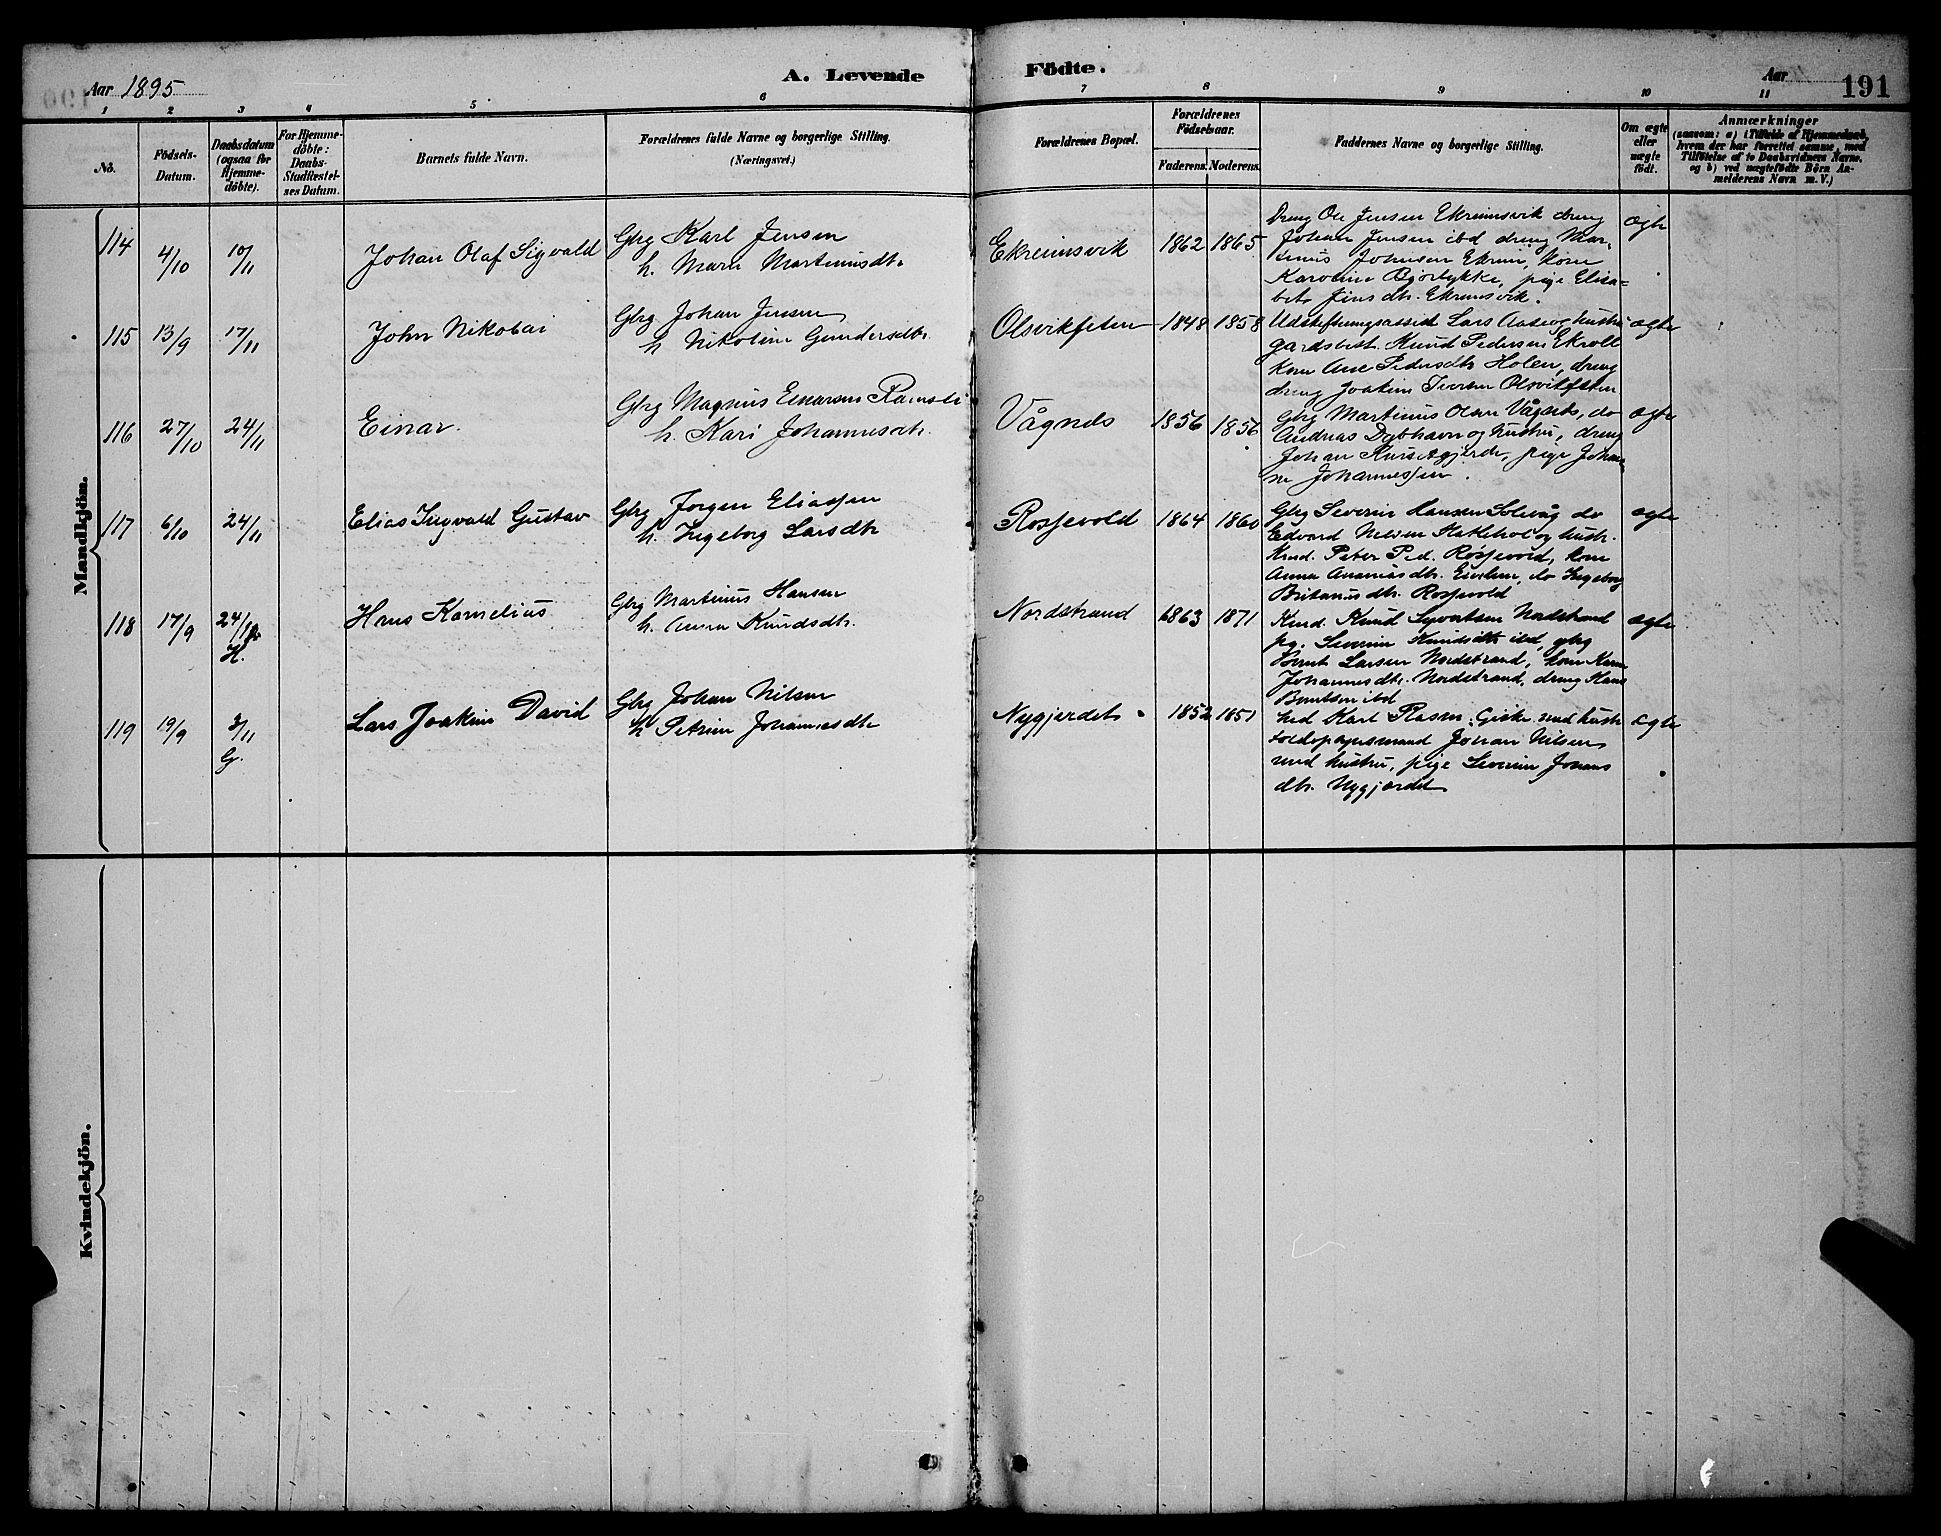 Aar 1895
A. Levende
Födte.
Aar
191
1 2 3 4 5 6 7 8 9 10 11
No.
Födsels-
Datum.
Daabsdatum
(ogsaa for
Hjemme-
döbte).
For Hjemme-
döbte:
Daabs-
Stadfæstel-
ses Datum.
Barnets fulde Navn.
Forældrenes fulde Navne og borgerlige Stilling.
(Næringsvei.)
Forældrenes Bopæl.
Forældrenes
Födselsaar.
Faderens.
Moderens.
Faddernes Navne og borgerlige Stilling.
Om ægte
eller
uægte
födt.
Anmærkninger
(saasom: a) i Tilfælde af Hjemmedaab,
hvem der har forrettet samme, med
Tilföielse af to Daabsvidners Navne,
og b) ved uægtefödte Börn An-
melderens Navn m. V.)
Mandkjön.
114 4/10 10/11 Johan Olaf Sigvald
Gbrg Karl Jensen
h. Maren Martinusdtr.
Ekreimsvik 1862 1865
Dreng Ole Jensen Ekreimsvik dreng
Johan Jensen ibd dreng Mar-
tinus Johnsen Ekrem, kone
Karoline Bjørlykke, pige Elisa-
bet Jensdtr. Ekremsvik.
ægte
115 13/9 17/11 John Nikolai
Gbrg Johan Jensen
h. Nikoline Gundersdtr.
Olsvikfeten 1848 1858
Udskiftningsassist Lars Aase og hustru
gardsbest. Knud Pedersen Ekroll
kone Ane Pedersdtr Holen, dreng
dreng Joakim Iversen Olsvikfeten
ægte
116 27/10 24/11 Einar.
Gbrg Magnus Einarsen
h. Kari Johannesdtr.
Vågnes 1856 1856
Gbrg Martinus Olsen Vågnes, do
Andreas Dybhavn og hustru, dreng
Johan, pige Johan-
ne Johannessen.
ægte
117 6/10 24/11 Elias Ingvald Gustav
Gbrg Jørgen Eliassen
h. Ingeborg Larsdtr
Rossevold 1864 1860
Gbrg Severin Hansen Solevåg do
Edvard Nilsen Flatehol og hustr.
Knud. Peter Ped. Rossevold, kone
Anna Ananiasdtr., do Ingeborg
Britaniusdtr. Rossevold
ægte
118 17/9 24/11 H.
Hans Kornelius
Gbrg Martinus Hansen
h. Anna Knudsdtr.
Nordstrand 1863 1871
Knud Syvertsen Nordstrand
pg. Severine Knudsdtr ibd, gbrg
Bernt Larsen Nordstrand, kone Karen
Johannesdtr. Nordstrand, dreng Hans
Berntsen ibd
ægte
119 19/9 3/11 G.
Lars Joakim David
Gbrg Johan Nilsen
h Petrine Johannesdtr
Nygjerdet 1852 1851
Karl Rasm. Giske med hustr
Johan Nilsen
med hustru, pige Severine Johans
dtr. Nygjerdet
ægte
Kvindekjön.